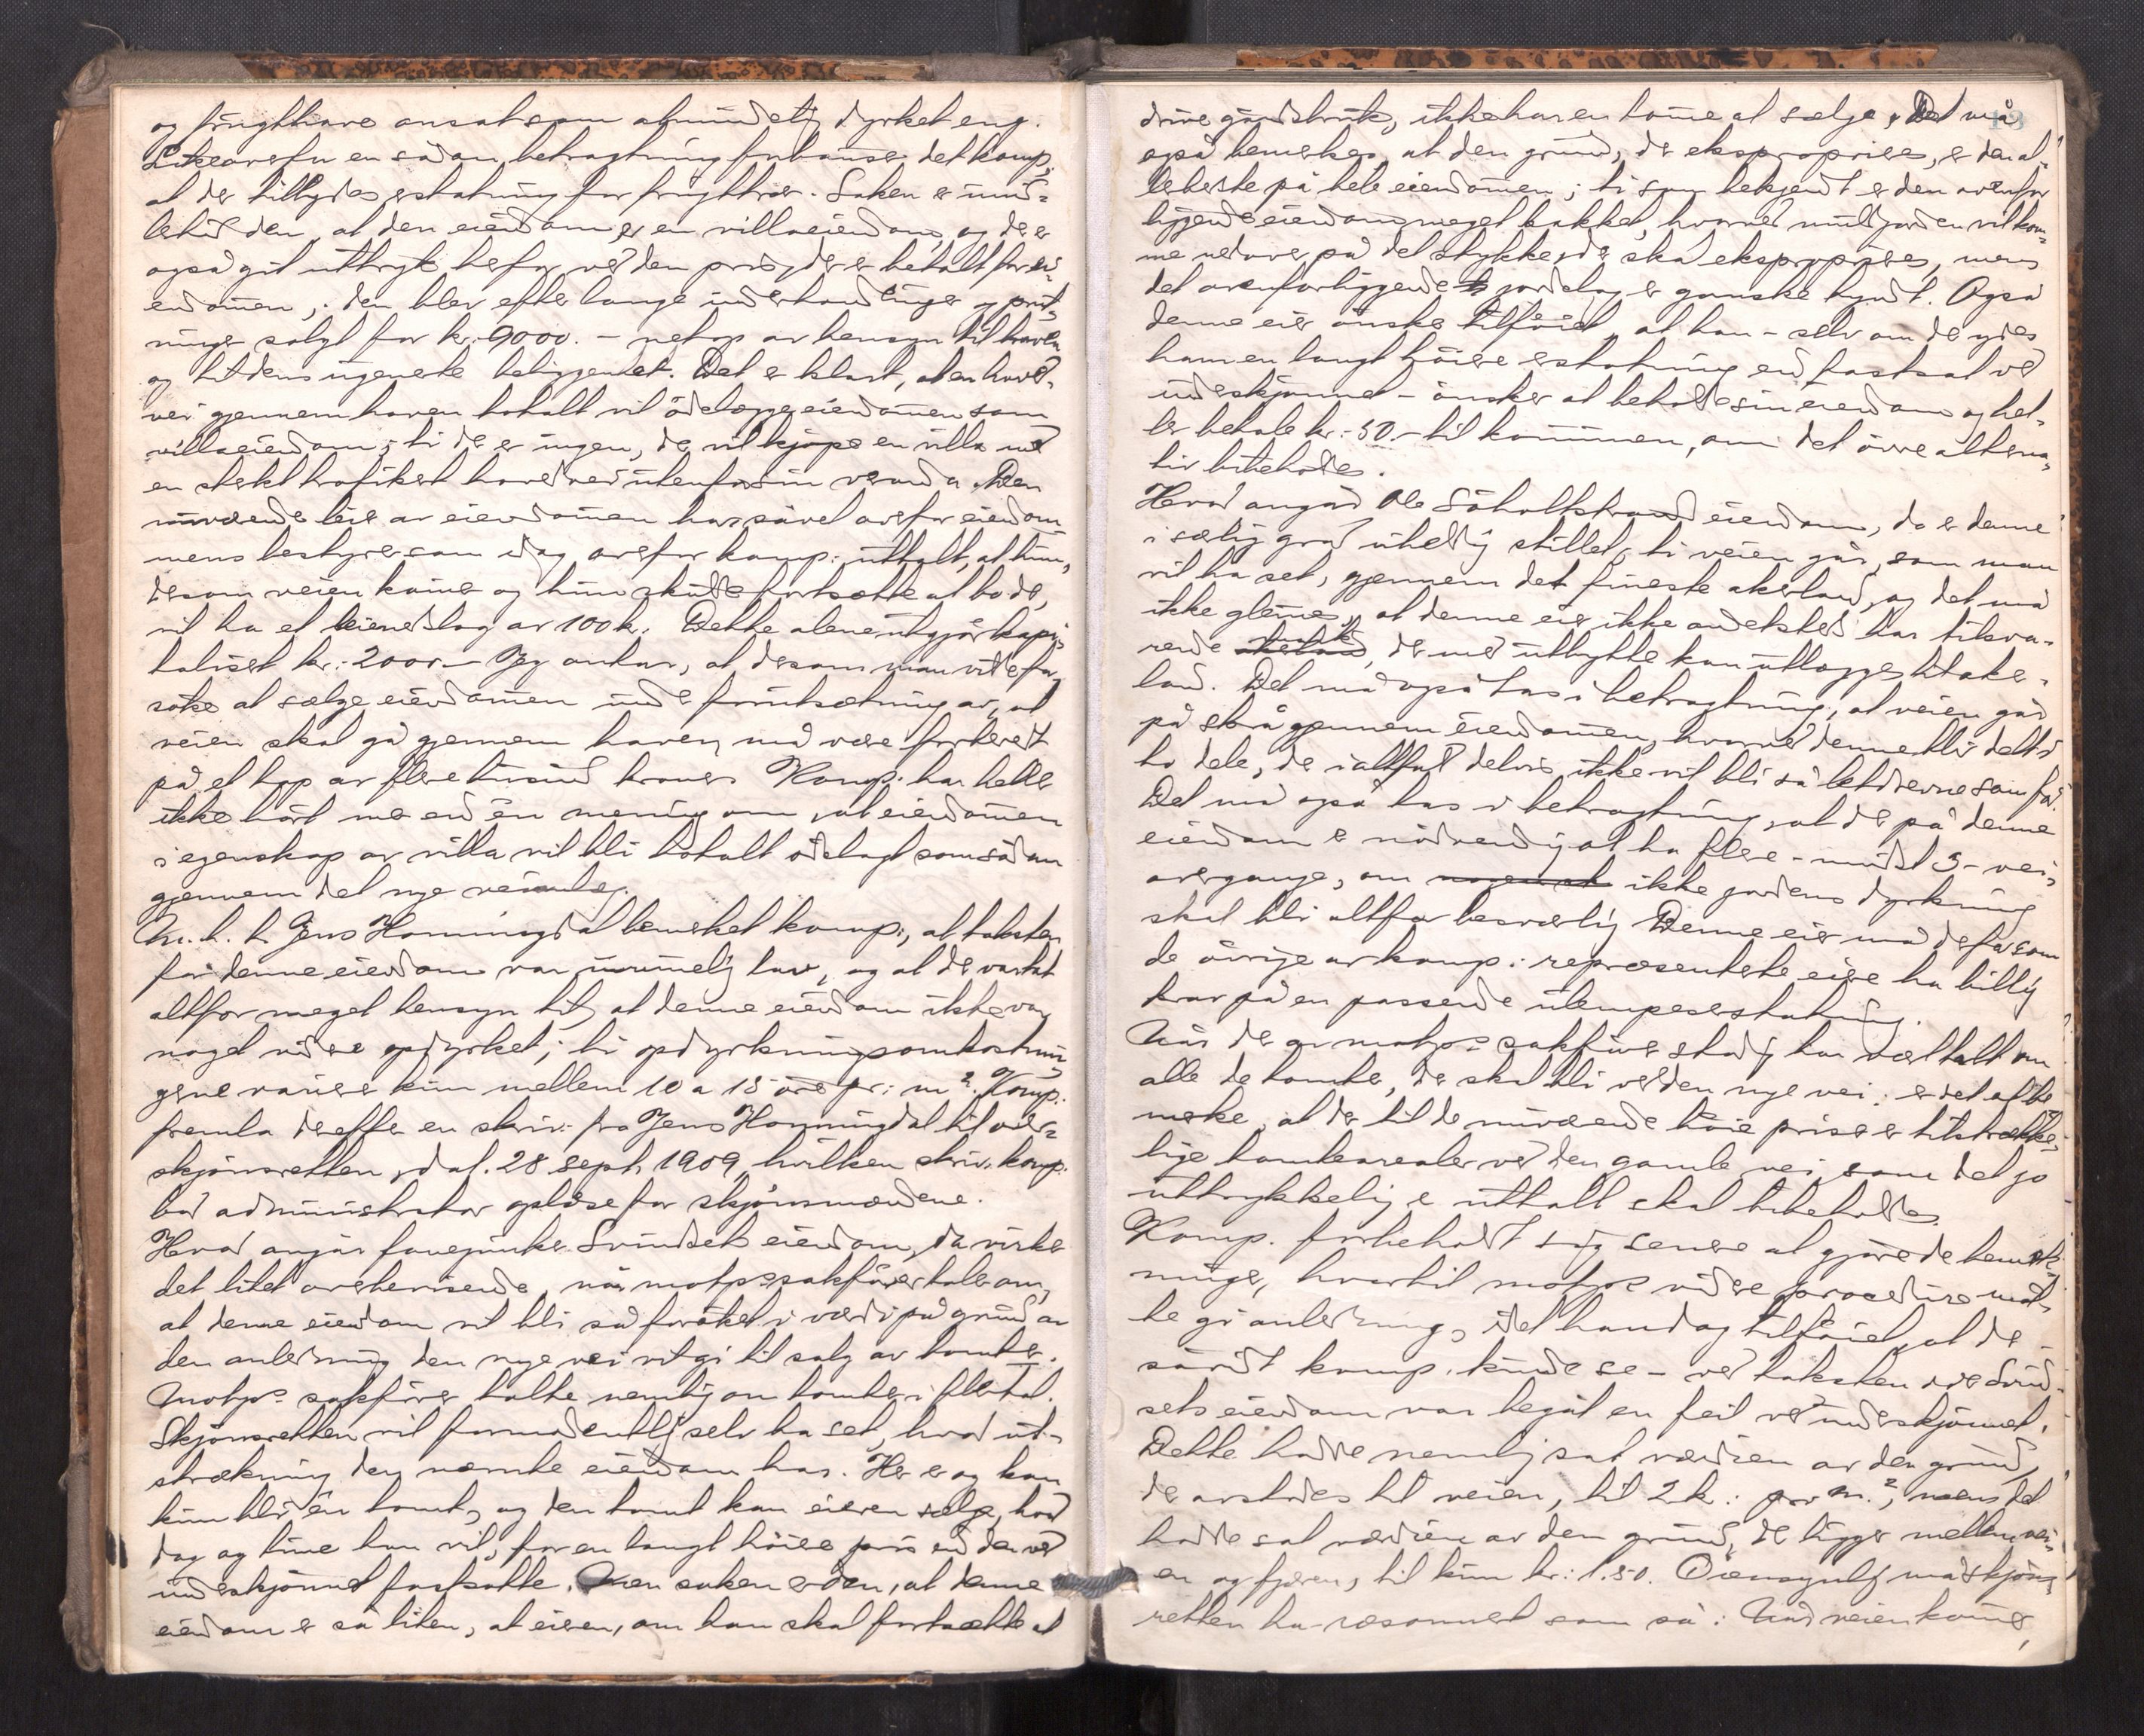 og frugthave ansat som almindelig dyrket eng.
Likeoverfor en sådan betragtning fremhæver det komp.,
at der tillægdes erstatning for frugttrær. Saken er imid-
lertid den, at den eiendom er en villaeiendom, og der er
også git uttryk herfor ved den pris, der er betalt for ei-
endommen; den blev efter lange underhandlinger og prut-
ninger solgt for kr. 9000. – netop av hensyn til haven
og til dens ugenerte beliggenhet. Det er klart, at en hoved-
vei gjennem haven totalt vil ødelægge eiendommen som
villaeiendom; ti der er ingen, der vil kjøpe en villa med
en sterkt trafikert hovedvei utenfor sin veranda. Den
nuværende leier av eiendommen har såvel overfor eiendom-
mens bestyrer som idag overfor komp. uttalt, at hun,
dersom veien kommer og hun skulde fortsætte at bo der,
vil ha et leieavslag av 100 kr. Dette alene utgjør kapi-
taliset kr.: 2000.– Jeg antar, at dersom man vilde for-
søke at sælge eiendommen under forutsætning av, at
veien skal gå gjennem haven, må være forberedt
på et tap av flere tusind kroner. Komp. har heller
ikke hørt mer end én mening om, at eiendommen
i egenskap av villa vil bli totalt ødelagt som sådan
gjennem det nye veianlæg.
M. h. t. Jens Honningdal bemerket komp., at taksten
for denne eiendom var urimelig lav, og at der var tat
altfor meget hensyn til, at denne eiendom ikke var
noget videre opdyrket; ti opdyrkningsomkostnin-
gene varierer kun mellem 10 a 15 øre pr. m². Komp.
fremla derefter en skriv. fra Jens Honningdal til over-
skjønsretten, dat. 28 sept. 1909, hvilken skriv. komp.
bad administrator oplæse for skjønsmændene.
Hvad angår fanejunker Svindsets eiendom, da virker
det litet overbevisende, når motp.s sakfører taler om,
at denne eiendom vil bli så forøket i værdi på grund av
den anledning den nye vei vil gi til salg av tomter.
Motp.s sakfører talte nemlig om tomter i flertal.
Skjønsretten vil formodentlig selv ha set, hvad ut-
strækning den nævnte eiendom har. Her er og kan
kun bli én tomt, og den tomt kan eieren sælge, hvad
dag og time han vil, for en langt høiere pris end den ved
underskjønnet fastsatte. Men saken er den, at denne
eiendom er så liten, at eieren, om han skal fortsætte at
drive gårdsbruk, ikke har en tomme at sælge. Det må
også bemerkes, at den grund, der eksproprieres, er den al-
lerbeste på hele eiendommen; ti som bekjendt er den ovenfor
liggende eiendom meget bakket, hvorved muldjorden vil kom-
me nedover på det stykke, der skal eksproprieres, mens
det ovenforliggende jordslag er ganske tyndt. Også
denne eier ønsker tilføiet, at han – selv om der ydes
ham en langt høiere erstatning end fastsat ved
underskjønnet – ønsker at beholde sin eiendom og hel-
ler betale kr.: 50.– til kommunen, om det øvre alterna-
tiv bibeholdes.
Hvad angår Ole Søholtstrand eiendom, da er denne
i særlig grad uheldig stillet; ti veien går, som man
vil ha set, gjennem det fineste akerland, og det må
ikke glemmes, at denne eier ikke andetsted har tilsva-
rende, der med utbytte kan utlægges til aker-
land. Det må også tas i betragtning, at veien går
på skrå gjennem eiendommen, hvorved denne blir delt i
to dele, der iallfald delvis ikke vil bli så letdrevne som før.
Det må også tas i betragtning, at der på denne
eiendom er nødvendig at ha flere – mindst 3 – vei-
overgange, om ikke jordens dyrkning
skal bli altfor besværlig. Denne eier må derfor som
de øvrige av komp. repræsenterte eiere ha billig
krav på en passende ulempeserstatning.
Når der av motp.s sakfører stadig har været talt om
alle de tomter, der skal bli ved den nye vei, er det at be-
merke, at der til de nuværende høie priser er tilstrække-
lige tomtearealer ved den gamle vei, som det jo
uttrykkelig er uttalt skal bibeholdes.
Komp. forbeholdt sig senere at gjøre de bemerk-
ninger, hvortil motp.s videre procedure måt-
te gi anledning, idet han dog tilføiet, at der
såvidt komp. kunde se – ved taksten over Svind-
sets eiendom var begåt en feil ved underskjønnet.
Dette hadde nemlig sat værdien av den grund,
der avstodes til veien, til 2 kr. pr. m.², mens det
hadde sat værdien av den grund, der ligger mellem vei-
en og fjæren, til kun kr.: 1.50. Øiensynlig må skjøns-
retten ha ræsonnert som så: Når veien kommer,